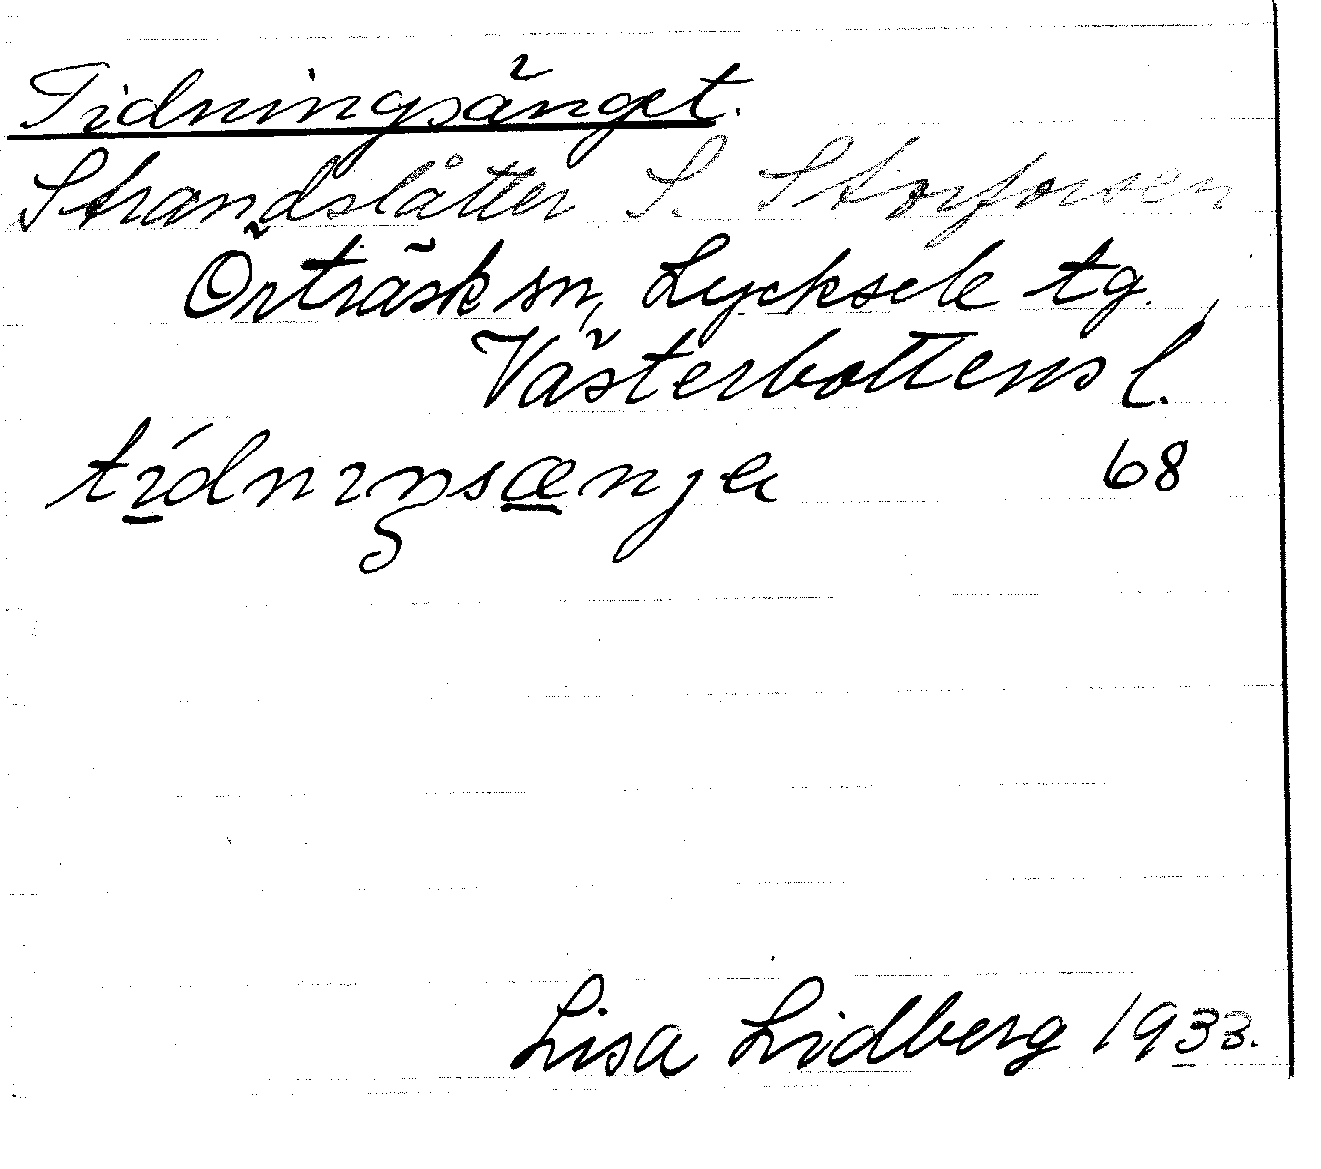 Tidningsänget.
Strandslåtter S. Storforsen
Örträsk sn, Lycksele tg.
Västerbottens l.
68
Lisa Lidberg 1933.